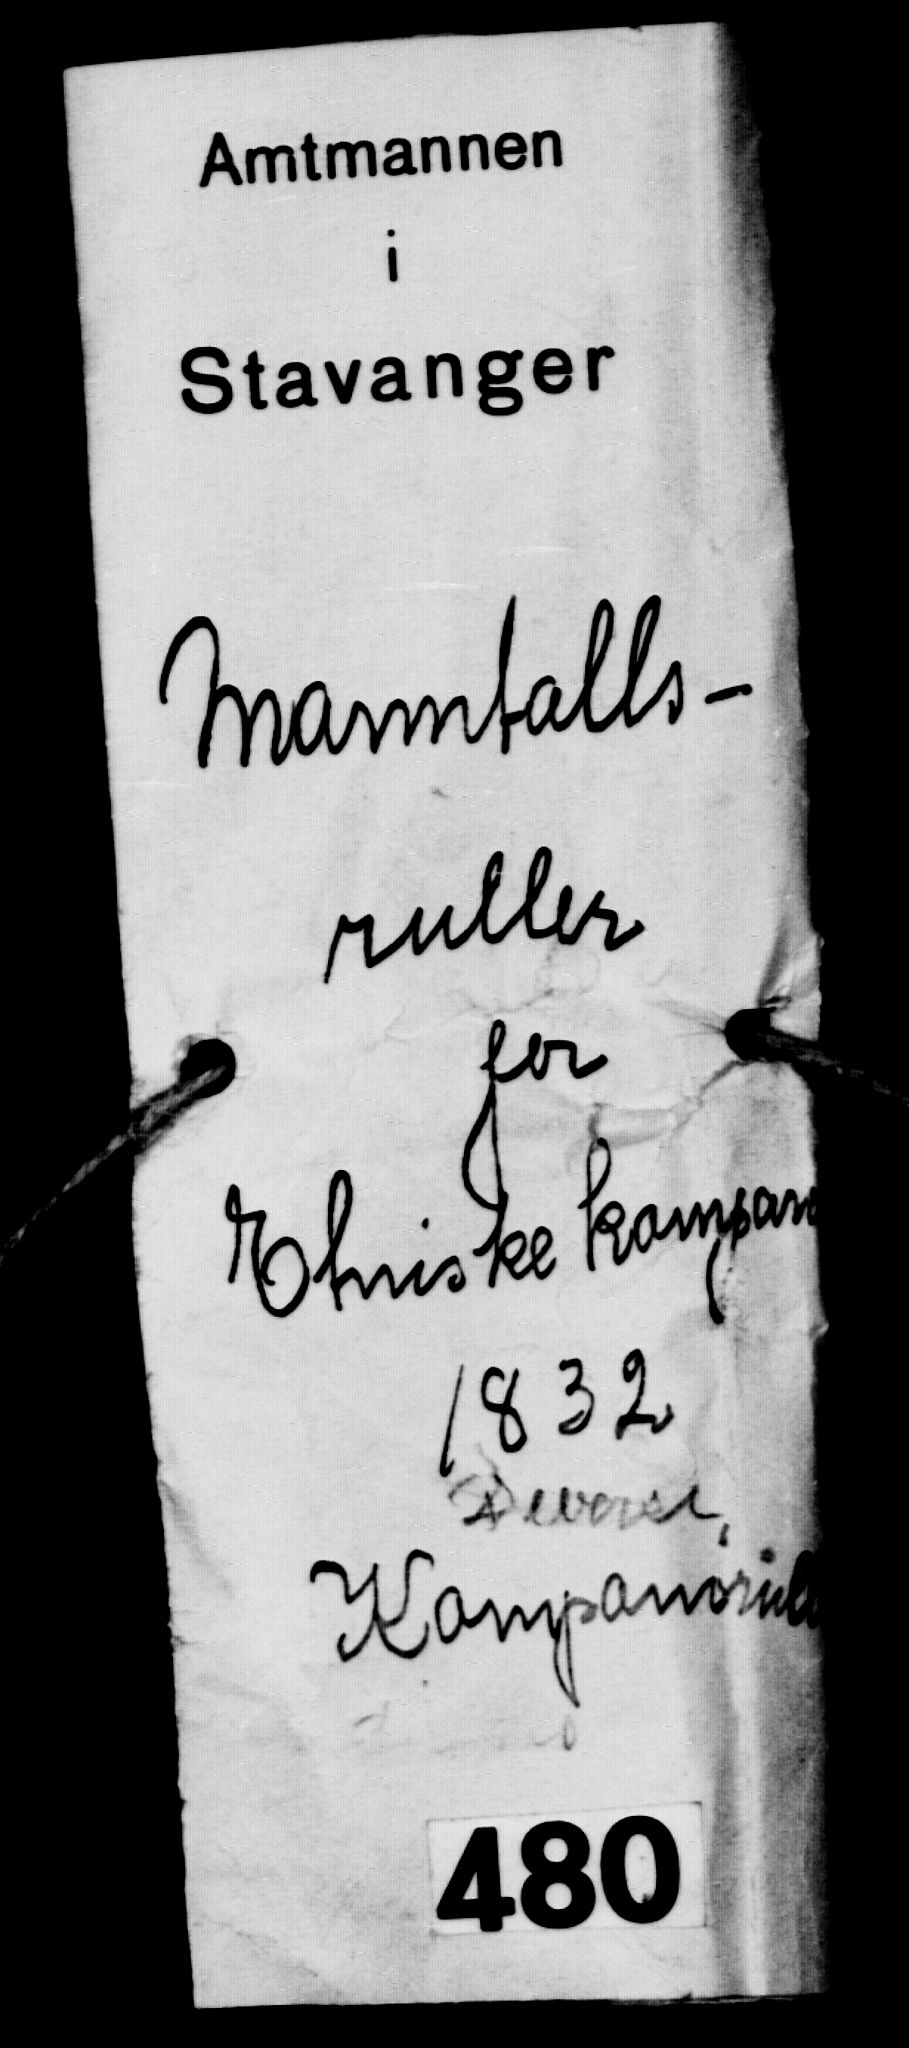 Amtmannen
i
Stavanger
Manntalls-
ruller
for
Etniske kompan
1832
Diverse
Kompanirull
480